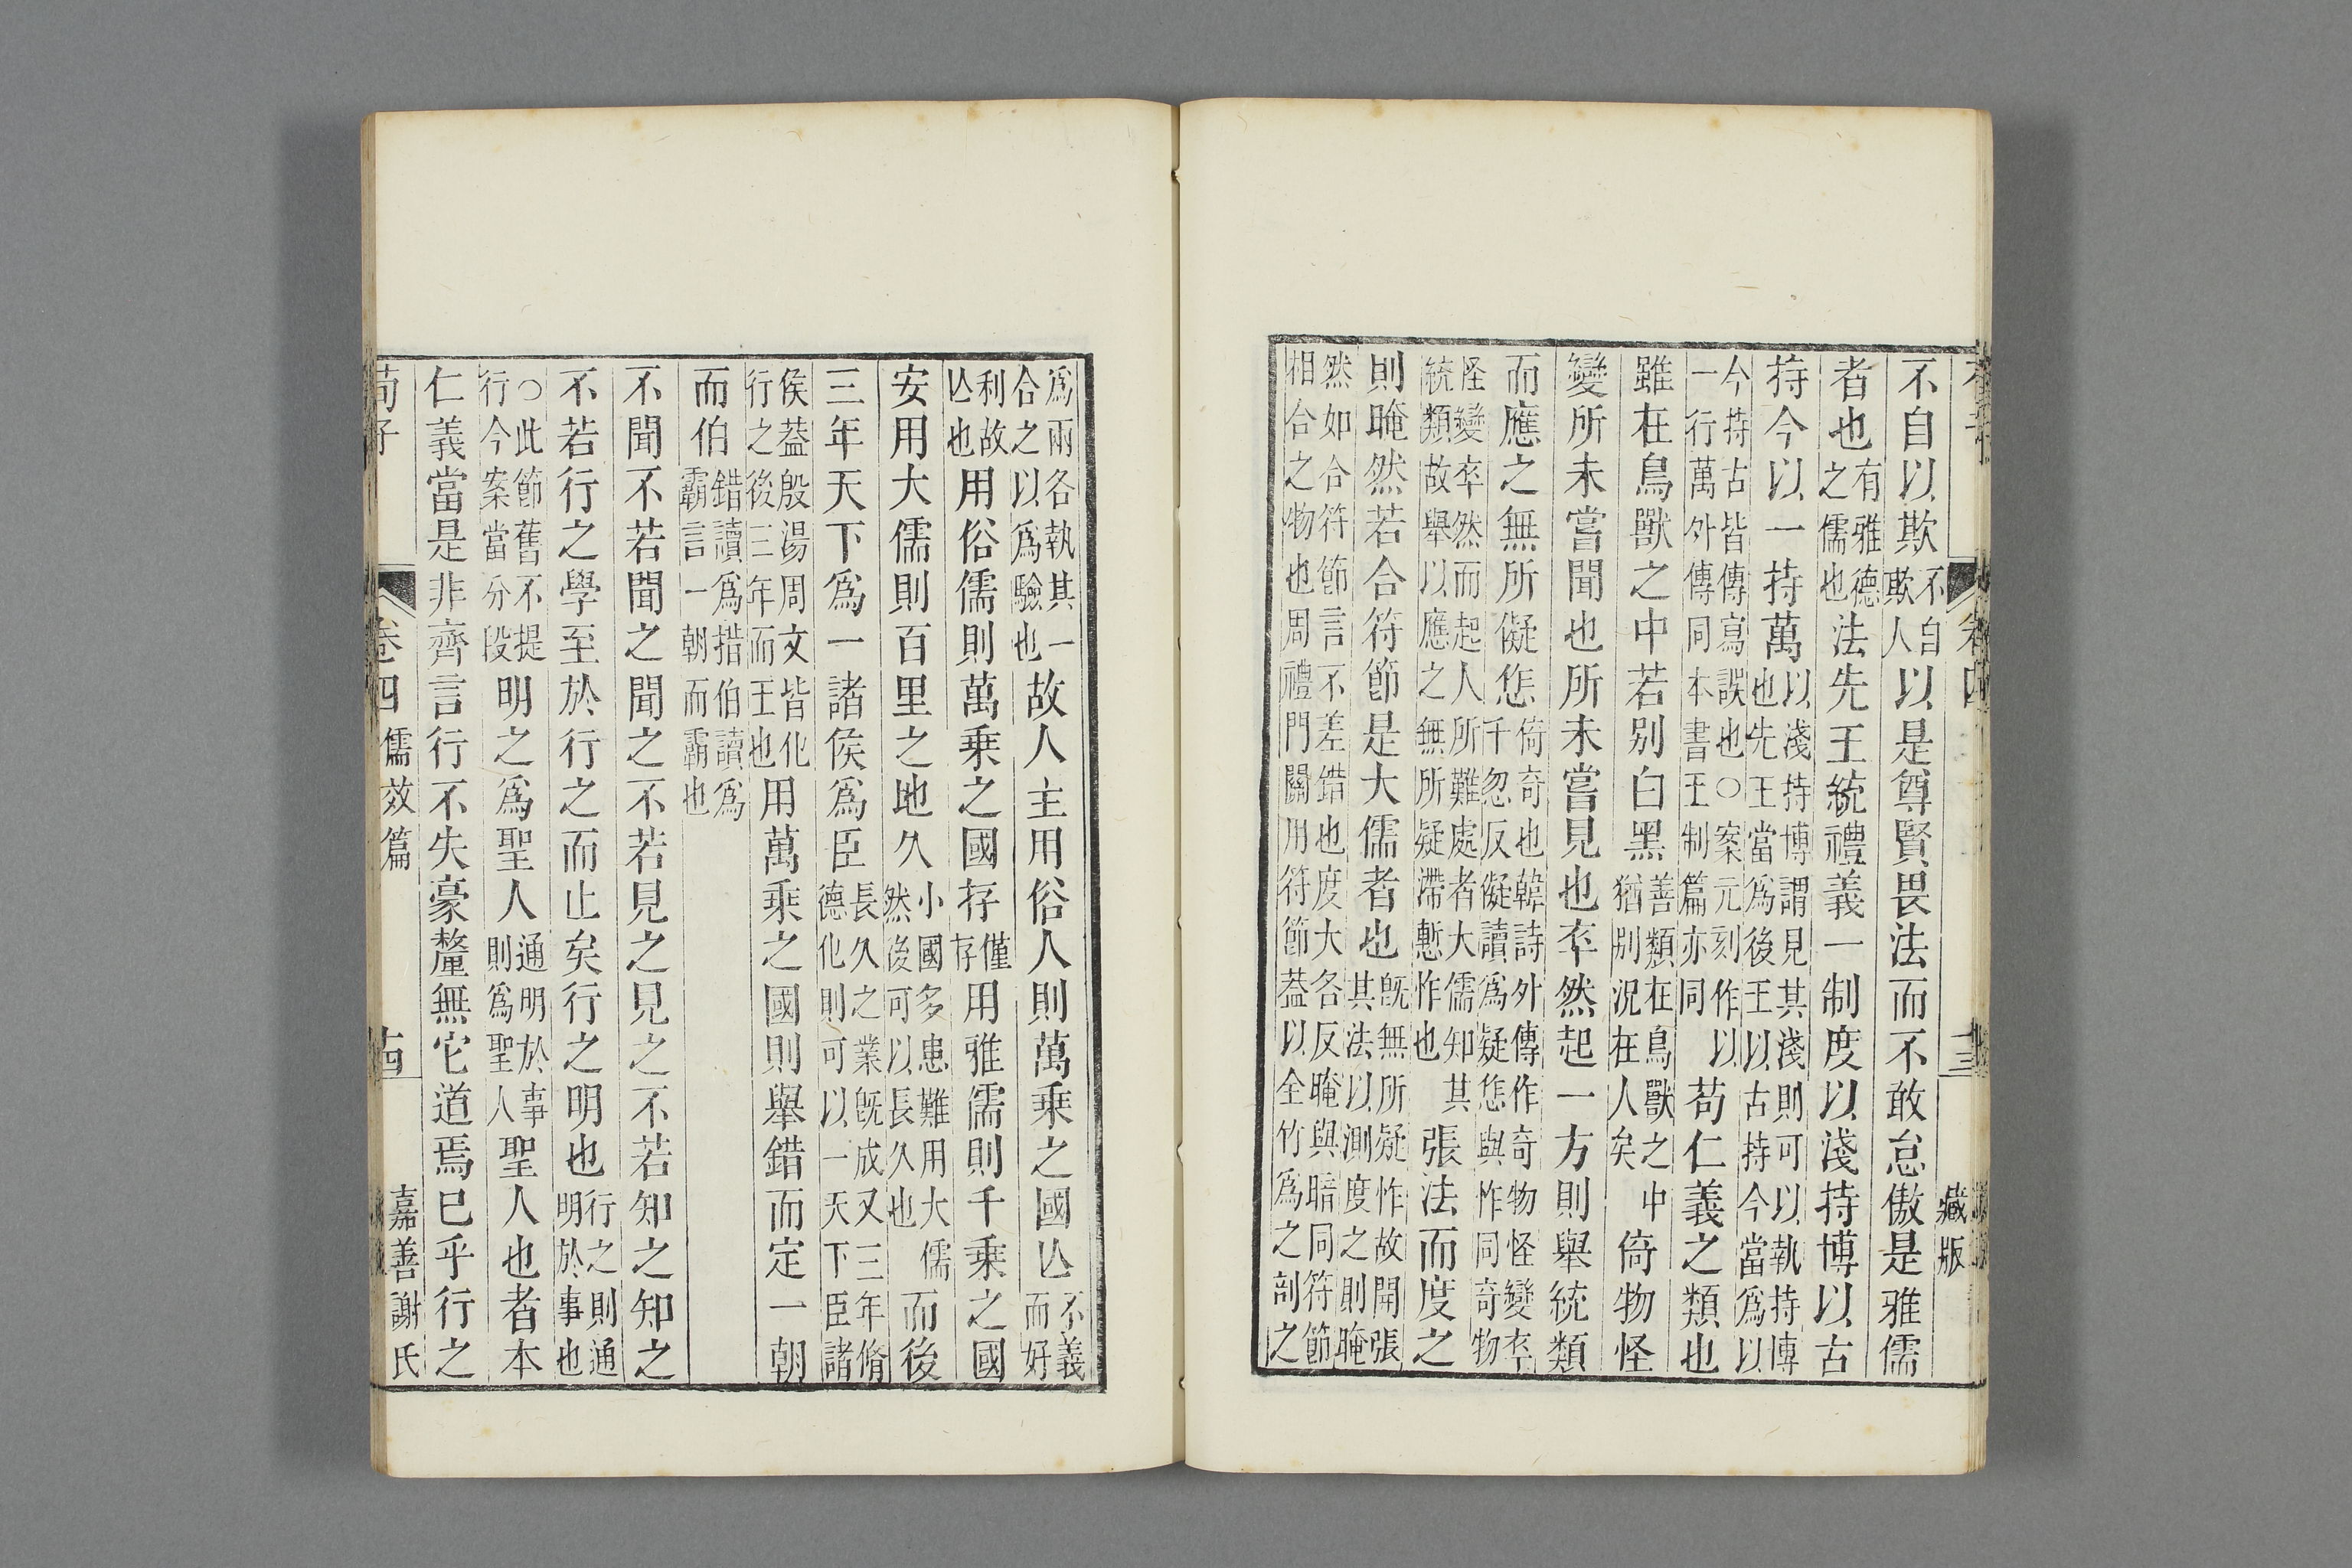 藏版
不自以欺不自欺人以是尊賢畏法而不敢怠傲是雅儒
者也有雅德之儒也法先王統禮義一制度以淺持博以古
持今以一持萬以淺持博謂見其淺則可以執持博也先王當爲後王以古持今當爲以
今持古皆傳寫誤也○案元刻作以一行萬外傳同本書王制篇亦同苟仁義之類也
雖在鳥獸之中若别白黑善類在鳥獸之中猶别況在人矣倚物怪
變所未嘗聞也所未嘗見也卒然起一方則舉統類
而應之無所儗㤰倚奇也韓詩外傳作奇物怪變卒千忽反儗讀爲疑㤰與怍同奇物
怪變卒然而起人所難處者大儒知其統類故舉以應之無所疑滯慙怍也張法而度之
則晻然若合符節是大儒者也旣無所疑怍故開張其法以測度之則晻
然如合符節言不差錯也度大各反晻與暗同符節相合之物也周禮門關用符節葢以全竹爲之剖之
爲兩各執其一合之以爲驗也故人主用俗人則萬乘之國亾不義而好
利故亾也用俗儒則萬乘之國存僅存用雅儒則千乘之國
安用大儒則百里之地久小國多患難用大儒然後可以長久也而後
三年天下爲一諸侯爲臣長久之業旣成又三年脩德化則可以一天下臣諸
侯葢殷湯周文皆化行之後三年而王也用萬乘之國則舉錯而定一朝
而伯錯讀爲措伯讀爲霸言一朝而霸也
不聞不若聞之聞之不若見之見之不若知之知之
不若行之學至於行之而止矣行之明也行之則通明於事也
○此節舊不提行今案當分段明之爲聖人通明於事則爲聖人聖人也者本
仁義當是非齊言行不失豪釐無它道焉已乎行之
荀子 卷四 儒效篇 十四 嘉善謝氏